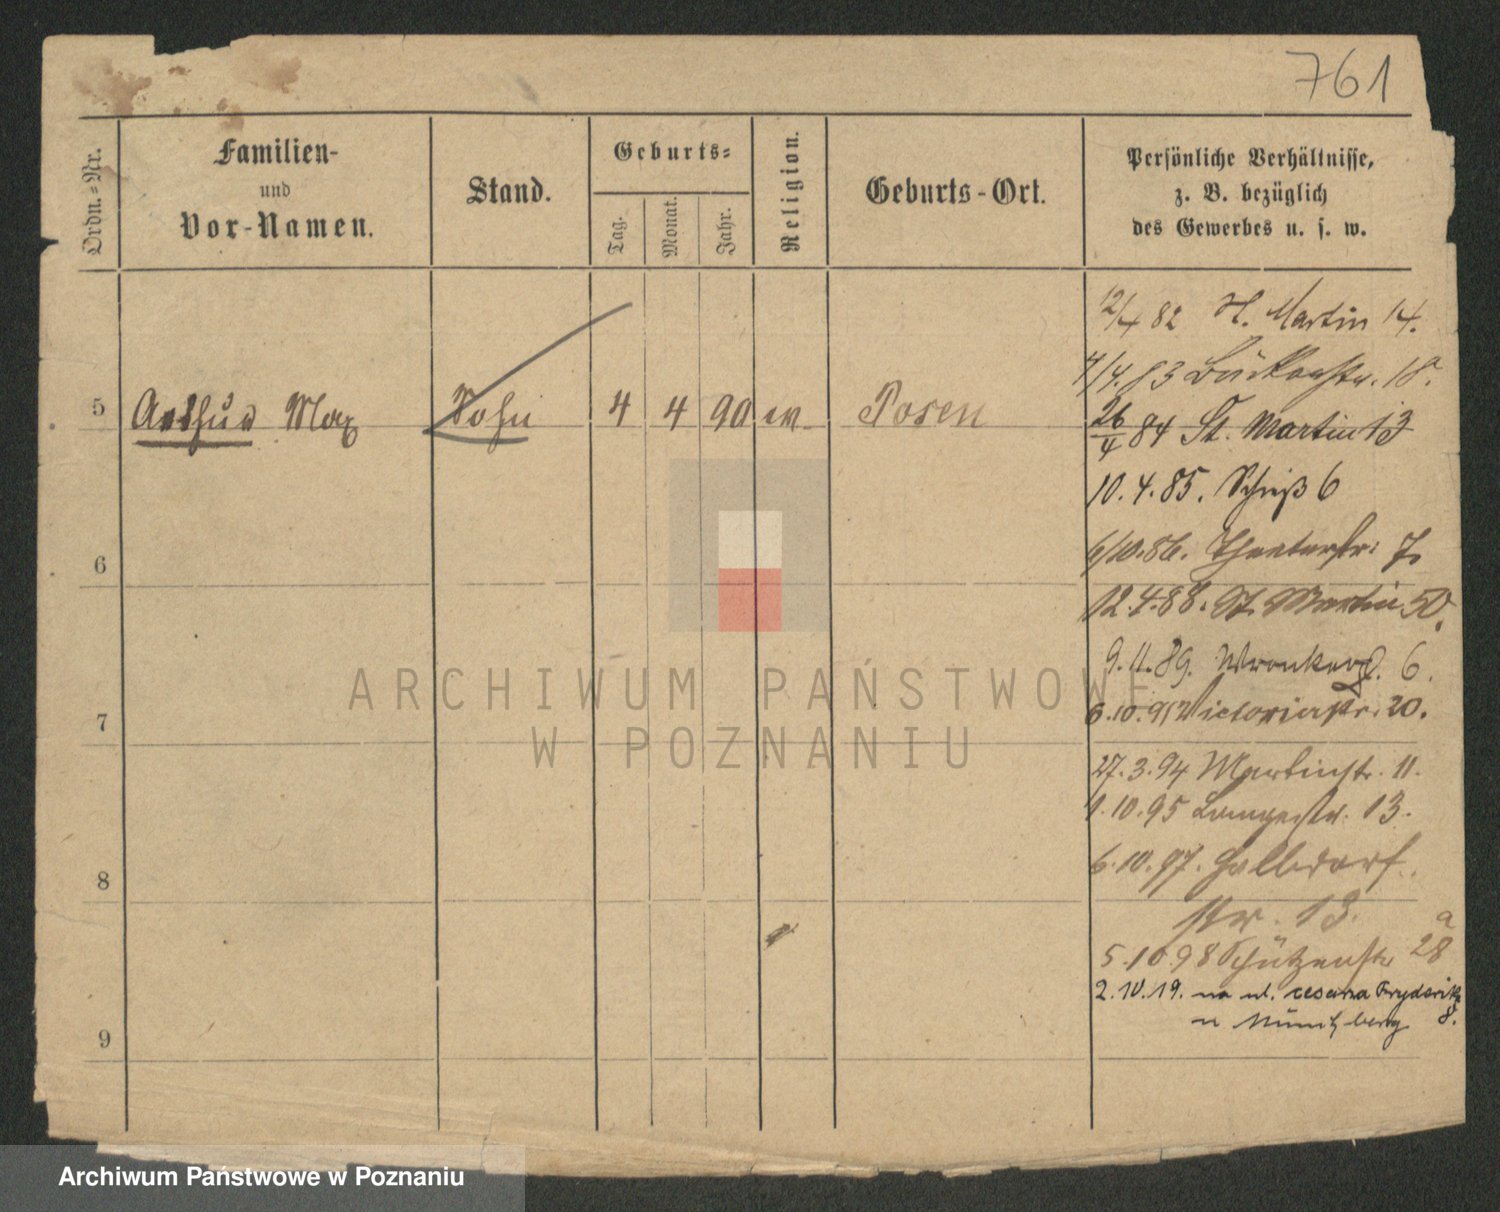 761
Ordn.-Nr.
Familien-
und
Vor-Namen.
Stand.
Geburts-
Tag.
Monat.
Jahr.
Religion.
Geburts-Ort.
Persönliche Verhältnisse,
z. B. bezüglich
des Gewerbes u. s. w.
5 Arthur Max Sohn 4 4 90 Posen
6
7
8
9
12/4 82 St. Martin 14.
4/4. 83 18.
26/4 84 St. Martin 13
10. 4. 85. 6
6/10. 86. Theaterstr. 7.
12. 4. 88. St. Martin 50.
9. 11. 89. Wronkerstr. 6.
6. 10. 91 Victoriastr. 20.
27. 3. 94 Martinstr. 11.
1. 10. 95 Langestr. 13.
6. 10. 97. Halbdorf
str. 13.
5. 10. 98 Schützenstr 28 a
2. 10. 19. na ul. cesarza Fryderika
8.
ARCHIWUM PAŃSTWOWE
W POZNANIU
Archiwum Państwowe w Poznaniu